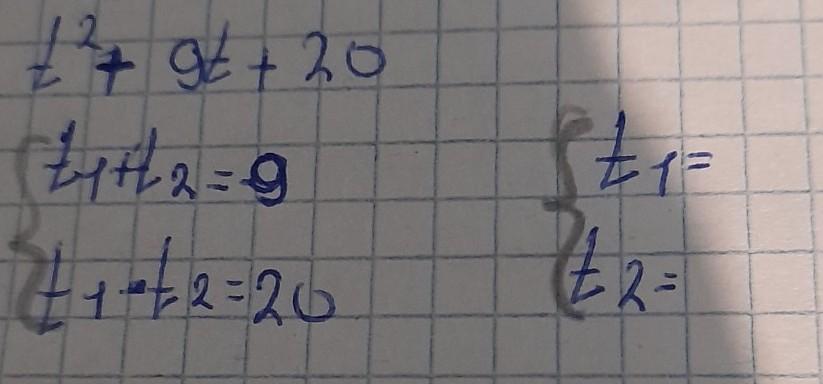 t² + 9t + 20
{ t₁+t₂=-9
t₁·t₂=20
{ t₁=
t₂=